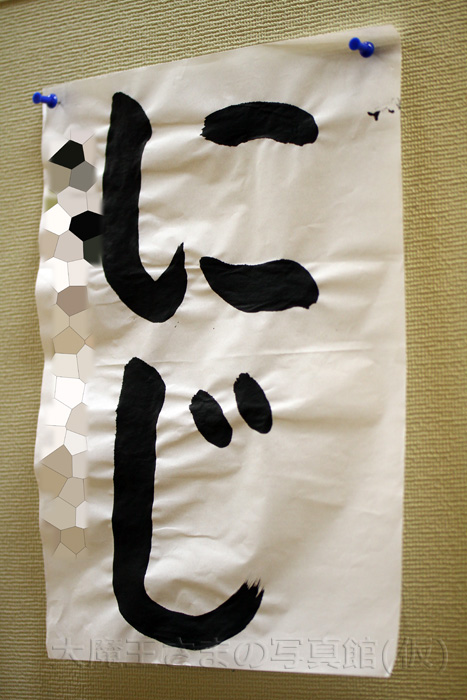 にじ
大魔王さまの写真館(仮)